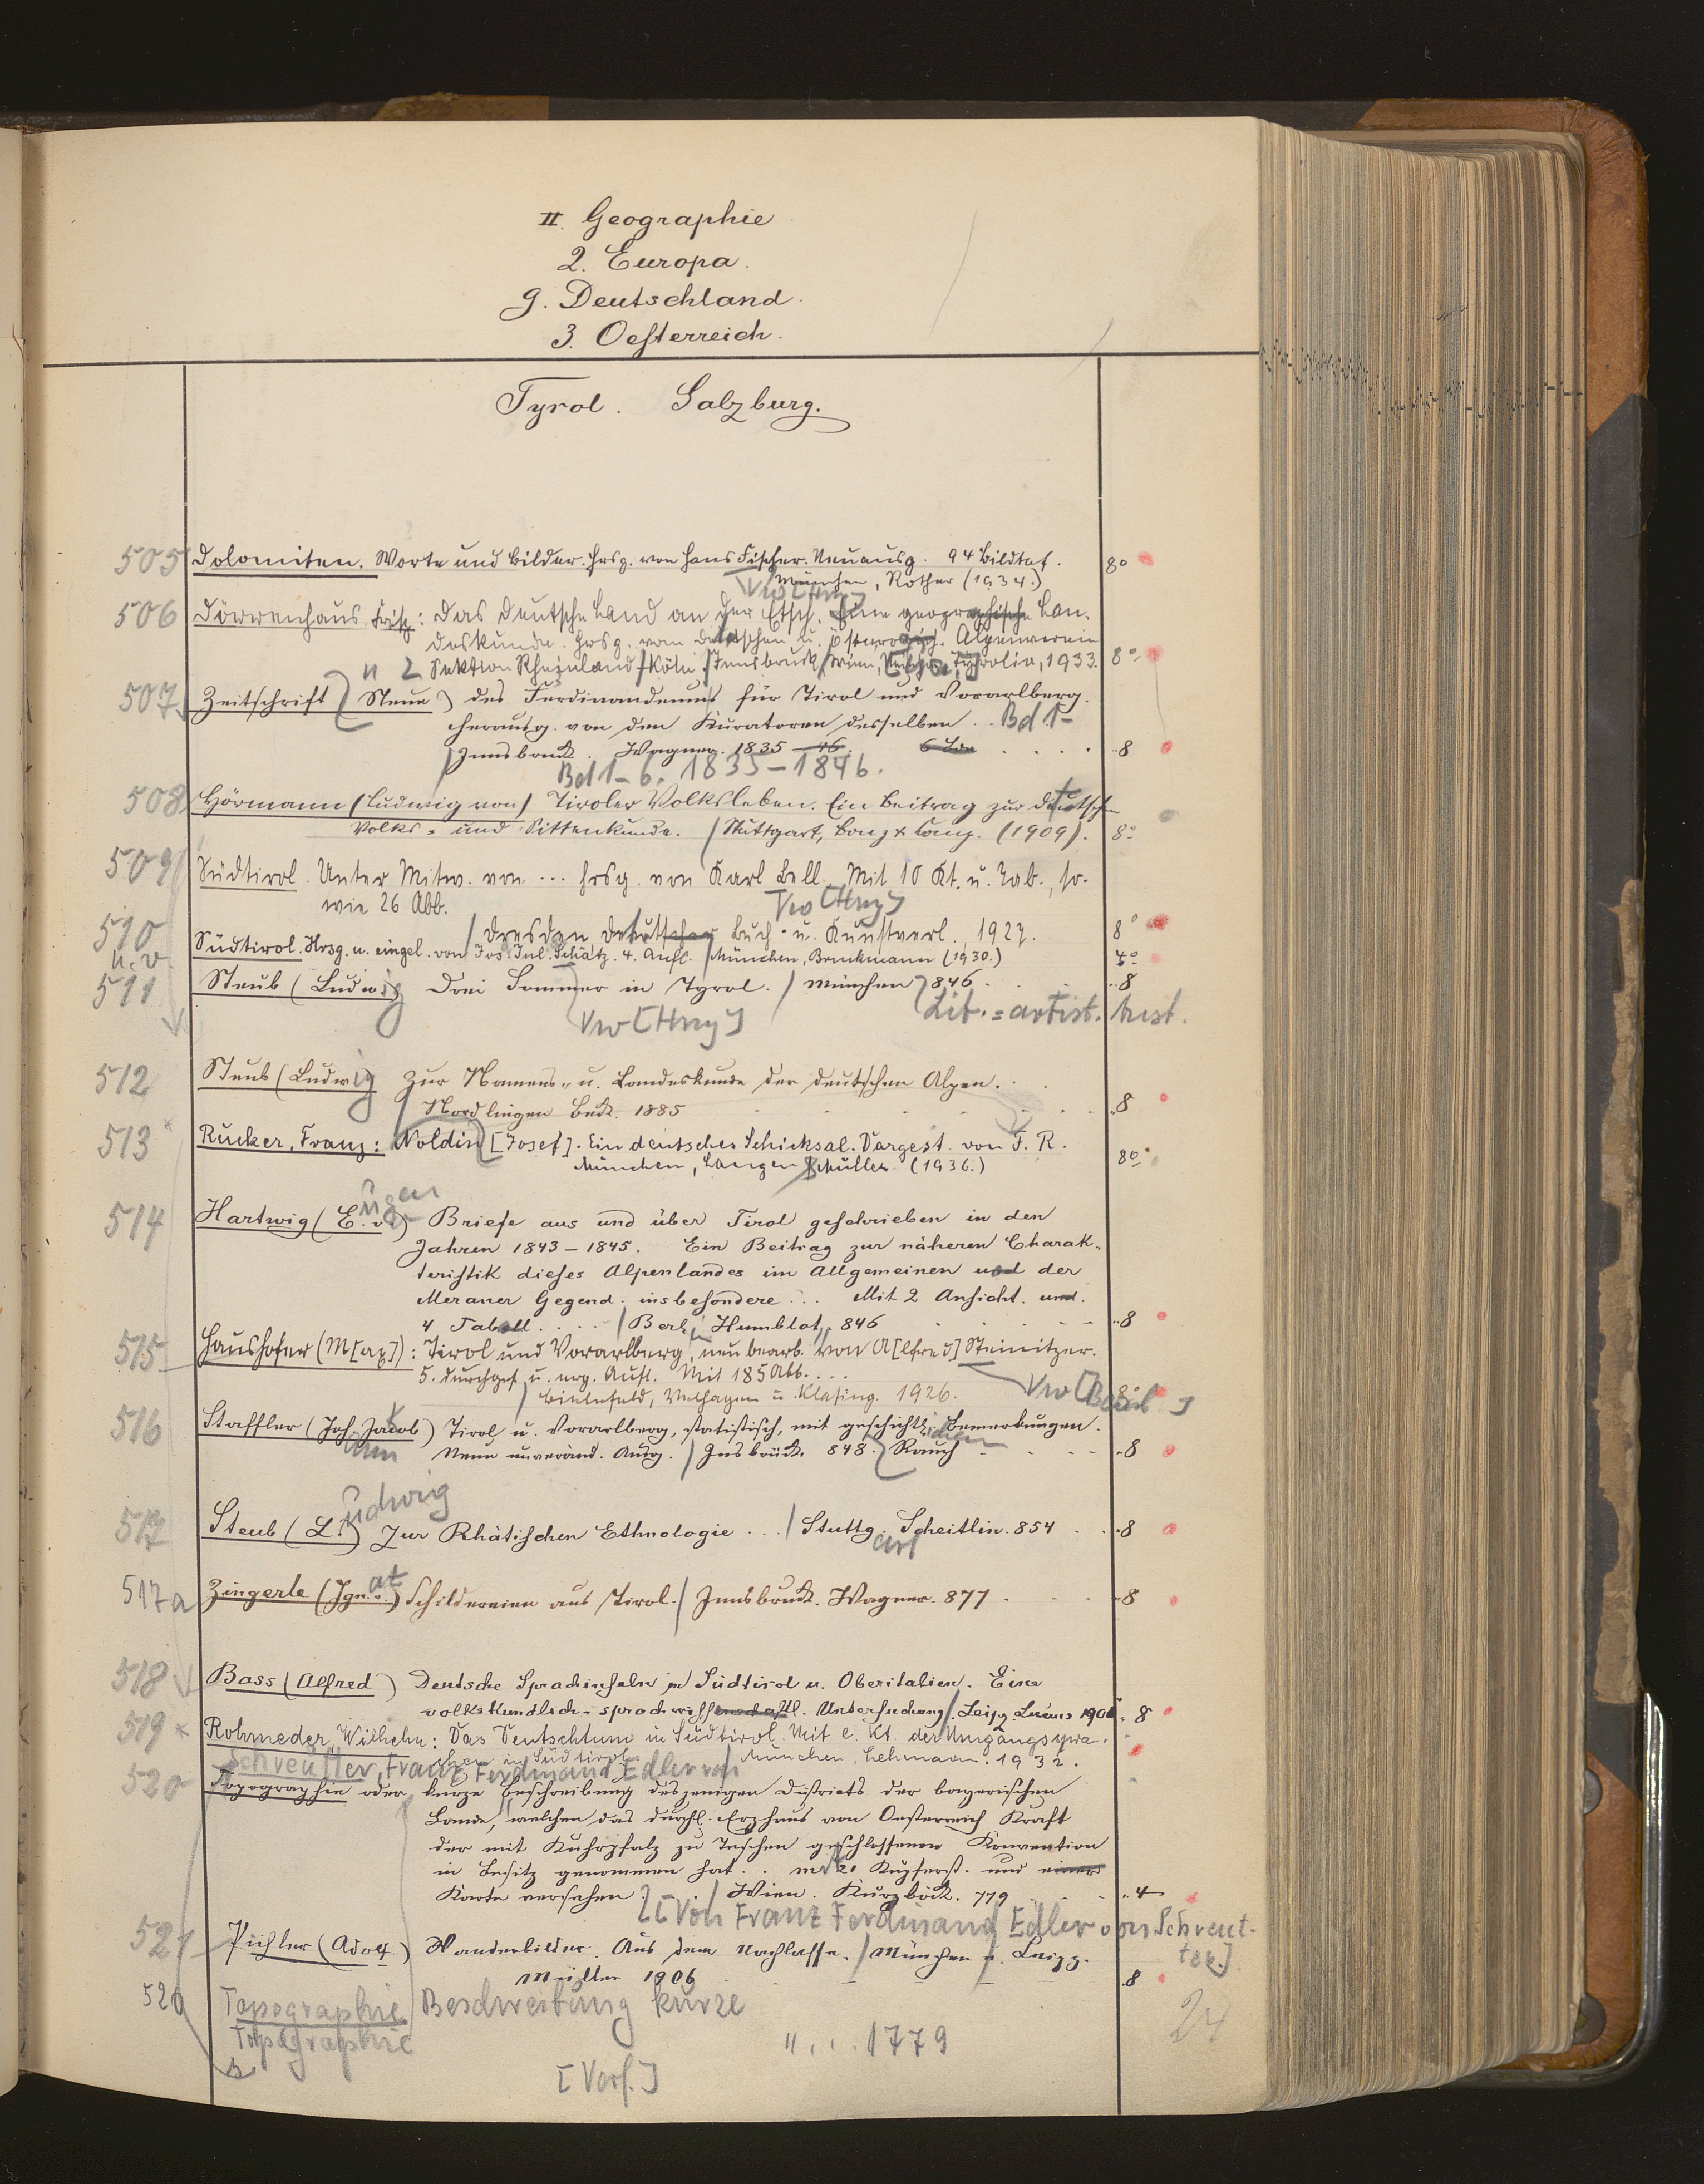 II. Geographie
2. Europa.
g. Deutschland.
3. Oesterreich.
Tyrol. Salzburg.
505 Dolomiten. Worte und Bilder. Hrsg. von Hans Fischer. Neuausg. 94 Bildtaf. 8°
München, Rother (1934.)
506 Dörrenhaus, Fritz: Das deutsche Land an der Etsch. Eine geographische Lan-
deskunde. Hrsg. vom Deutschen u. Österreich. Alpenverein
Sektion Rheinland/Köln/Innsbruck, Wien, Tyrolia, 1933. 8°
507 Zeitschrift (Neue) des Ferdinandeums für Tirol und Vorarlberg.
herausg. von den Kuratoren desselben. Bd 1-
Innsbruck. Wagner. 1835-46. 8
Bd 1-6. 1835-1846.
508 Hörmann (Ludwig von) Tiroler Volksleben. Ein Beitrag zur deutschen
Volks- und Sittenkunde. / Stuttgart, Bonz & Comp. (1909). 8°
509 Südtirol. Unter Mitw. von ... hrsg. von Karl Bell. Mit 10 Kt. u. Tab., so-
wie 26 Abb. Vw [Hrsg]
Dresden Deutscher Buch- u. Kunstverl. 1927. 8°
510 u. v. Südtirol. Hrsg. u. eingel. von Jos. Jul. Schätz. 4. Aufl. / München, Bruckmann (1930.) 4°
511 Steub (Ludwig) Drei Sommer in Tyrol. / München 846. 8
Vw [Hrsg] Lit.=artist. Anst.
512 Steub (Ludwig) Zur Namens- u. Landeskunde der deutschen Alpen.
Nördlingen Beck. 1885 8
513 Rucker, Franz: Noldin [Josef]. Ein deutsches Schicksal. Dargest. von F. R.
München, Langen / Müller (1936.) 8°
514 Hartwig (Eugen v.) Briefe aus und über Tirol geschrieben in den
Jahren 1843-1845. Ein Beitrag zur näheren Charak-
teristik dieses Alpenlandes im Allgemeinen und der
Meraner Gegend insbesondere... Mit 2 Ansicht. und
4 Tabell. / Berlin Humblot. 846 8
515 Haushofer (M[ax]): Tirol und Vorarlberg, neu bearb. von A[lfred] Steinitzer.
5. durchges. u. erg. Aufl. Mit 185 Abb. ...
Bielefeld, Velhagen u. Klasing. 1926. 8°
516 Staffler (Joh. Jakob) Tirol u. Vorarlberg, statistisch, mit geschichtlichen Bemerkungen.
Neue unveränd. Ausg. / Insbruck. 848. Rauch 8
517 Steub (Ludwig) Zur Rhätischen Ethnologie ... / Stuttgart Scheitlin. 854 8
517a Zingerle (Ignat v.) Schildereien aus Tirol. / Innsbruck. Wagner. 877 8
518 Bass (Alfred) Deutsche Sprachinseln in Südtirol u. Oberitalien. Eine
volkskundlich-sprachwissenschaftl. Untersuchung / Leipz. 8
519 Rohmeder, Wilhelm: Das Deutschtum in Südtirol. Mit e. Kt. der Umgangsspra-
chen in Südtirol. / München, Lehmann. 1932.
Schreutter, Franz Ferdinand Edler von
520 Topographie oder kurze Beschreibung desjenigen Districts der bayerischen
Lande, welchen das durchl. Erzhaus von Oesterreich Kraft
der mit Kuhrpfalz zu Teschen geschlossenen Konvention
in Besitz genommen hat. mit 20 Kupferst. und einer
Karte versehen / Wien. Kurzböck. 779 4
[Von Franz Ferdinand Edler von Schreut-
ter.]
521 Pichler (Adolf) Wanderbilder. Aus dem Nachlasse. / München u. Leipz.
Müller 1906 8
520 Topographie Beschreibung kurze
Topographie " . . . 1779
[Verf.]
24